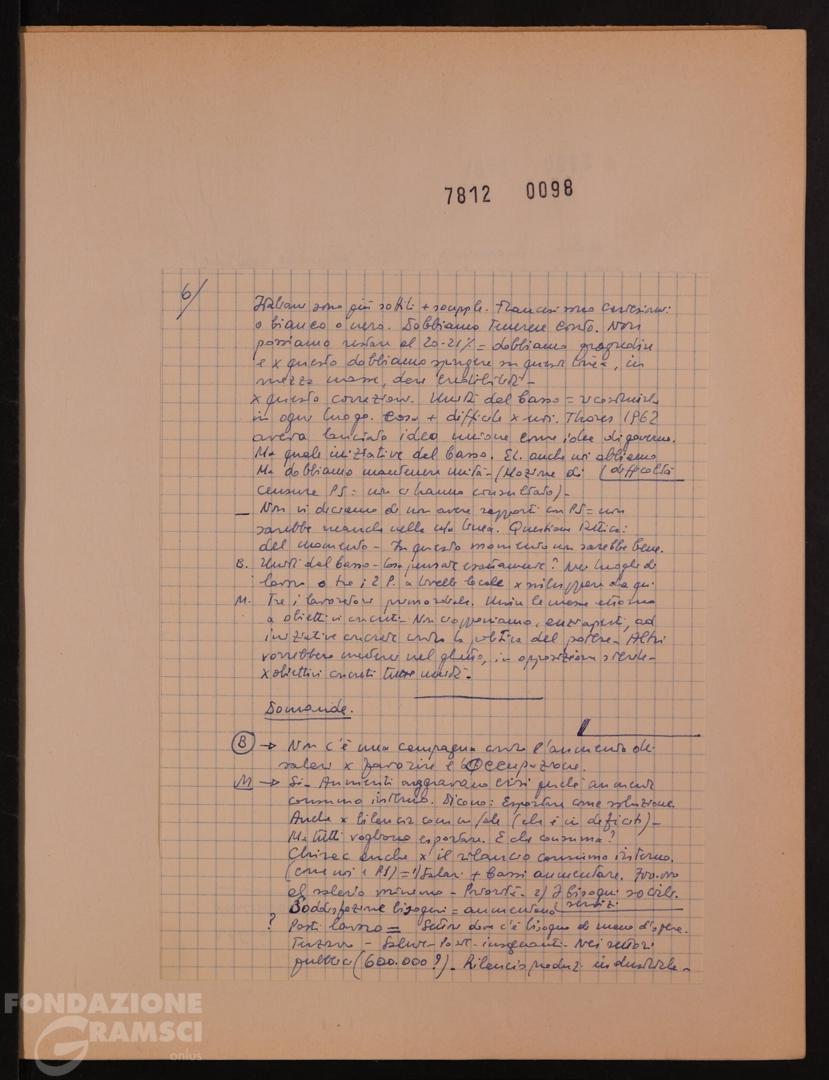 7812 0098
6/
Italiani sono più sottili + souple. Francesi sono cartesiani:
o bianco o nero. Dobbiamo tenerne conto. Non
possiamo restare al 20-21% = dobbiamo progredire
e x questo dobbiamo spingere su questa linea, in
mezzo masse, dare credibilità -
x questo correzione. Unità dal basso = ricostruirla
in ogni luogo. Cosa + difficile x noi. Thorez 1962
aveva lanciato idea unione come idea di governo.
Ma quale iniziative dal basso. El. anche noi abbiamo
Ma dobbiamo mantenere unità - (Mozione di (difficoltà
censura PS = non ci hanno consultato) -
— Non vi diciamo di non avere rapporti con PS = non
sarebbe neanche nella linea. Questione tattica:
del momento - In questo momento non sarebbe bene.
B. Unità dal basso - Cosa pensate esattamente? Nei luoghi di
lavoro o tra i 2 P. a livello locale x sviluppare da qui
M. Tra i lavoratori primordiale. Unire le masse attorno
a obiettivi concreti - Non ci opponiamo, anzi aperti, ad
iniziative concrete contro la politica del potere - Altri
vorrebbero metterci nel ghetto, in opposizione sterile -
x obiettivi concreti tutte unità -
Domande.
B → Non c'è una campagna contro l'aumento dei
salari x favorire l'Occupazione.
M → Si - Aumenti aggravano crisi perché aumenta
consumo interno. Dicono: Esportare come soluzione
Anche x bilancia comm/ale (che è in deficit) -
Ma tutti vogliono esportare. E chi consuma?
Chirac anche x il rilancio consumo interno.
(come noi e PS) = 1) Salari + bassi aumentare.
al salario minimo - Priorità - 2) I bisogni sociali.
Soddisfazione bisogni = aumentano servizi
? Posti lavoro = Settori dove c'è bisogno di mano d'opera.
Terziario - Salute - Post - insegnanti - Nei settori
pubblici (600.000?) - Rilancio produz. industriale -
FONDAZIONE
GRAMSCI
onlus